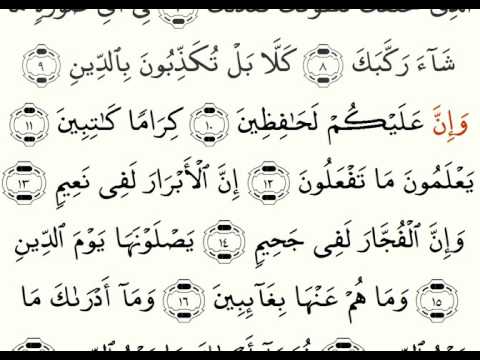 شَآءَ رَكَّبَكَ ٨ كَلَّا بَلْ تُكَذِّبُونَ بِٱلدِّينِ ٩
وَإِنَّ عَلَيْكُمْ لَحَـٰفِظِينَ ١٠ كِرَامًا كَـٰتِبِينَ ١١
يَعْلَمُونَ مَا تَفْعَلُونَ ١٢ إِنَّ ٱلْأَبْرَارَ لَفِى نَعِيمٍ ١٣
وَإِنَّ ٱلْفُجَّارَ لَفِى جَحِيمٍ ١٤ يَصْلَوْنَهَا يَوْمَ ٱلدِّينِ
١٥ وَمَا هُمْ عَنْهَا بِغَآئِبِينَ ١٦ وَمَآ أَدْرَىٰكَ مَا